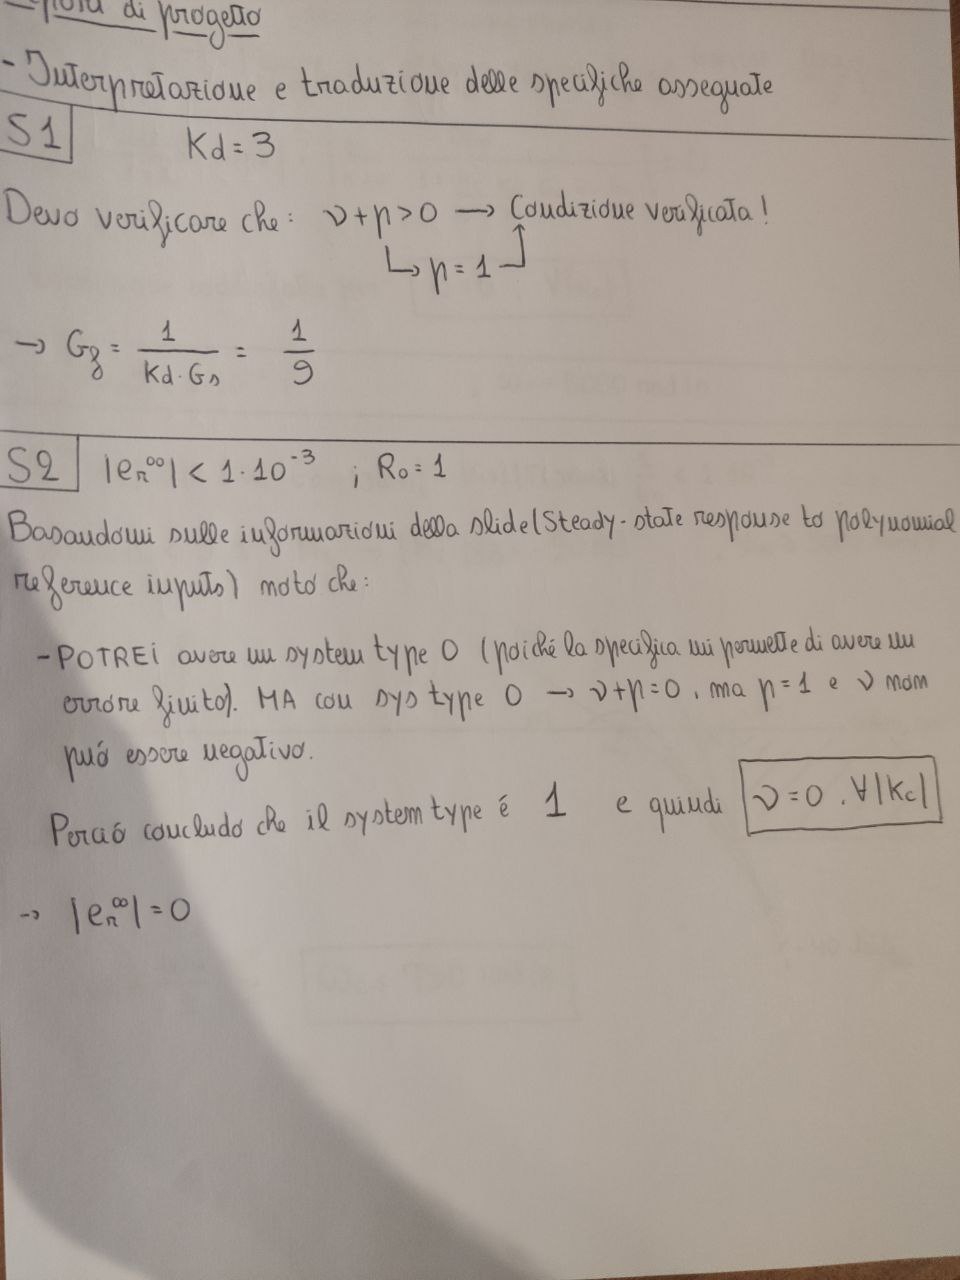 di progetto
- Interpretazione e traduzione delle specifiche assegnate
S1 Kd = 3
Devo verificare che: ν+p>0 → Condizione verificata!
↳ p = 1
→ Gf = 1/(Kd·Gs) = 1/9
S2 |er^∞| < 1·10^-3 ; R0 = 1
Basandomi sulle informazioni della slide (Steady-state response to polynomial
reference inputs) noto che:
- POTREI avere un system type 0 (poiché la specifica mi permette di avere un
errore finito). MA con sys type 0 → ν+p=0, ma p=1 e ν non
può essere negativo.
Perciò concludo che il system type é 1 e quindi ν=0, ∀|Kc|
→ |er^∞| = 0